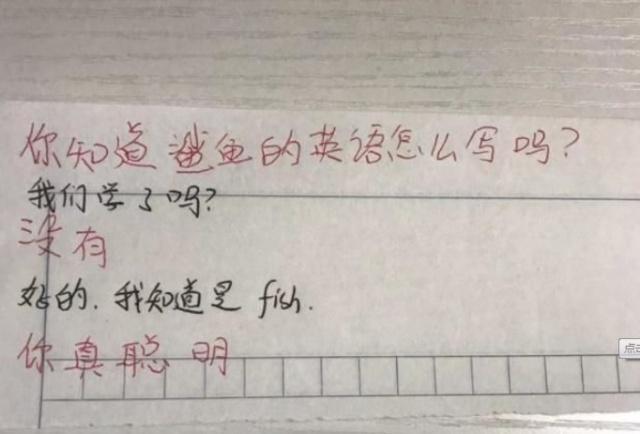 你知道鲨鱼的英语怎么写吗?
我们学了吗?
没有
好的. 我知道是 fish.
你真聪明